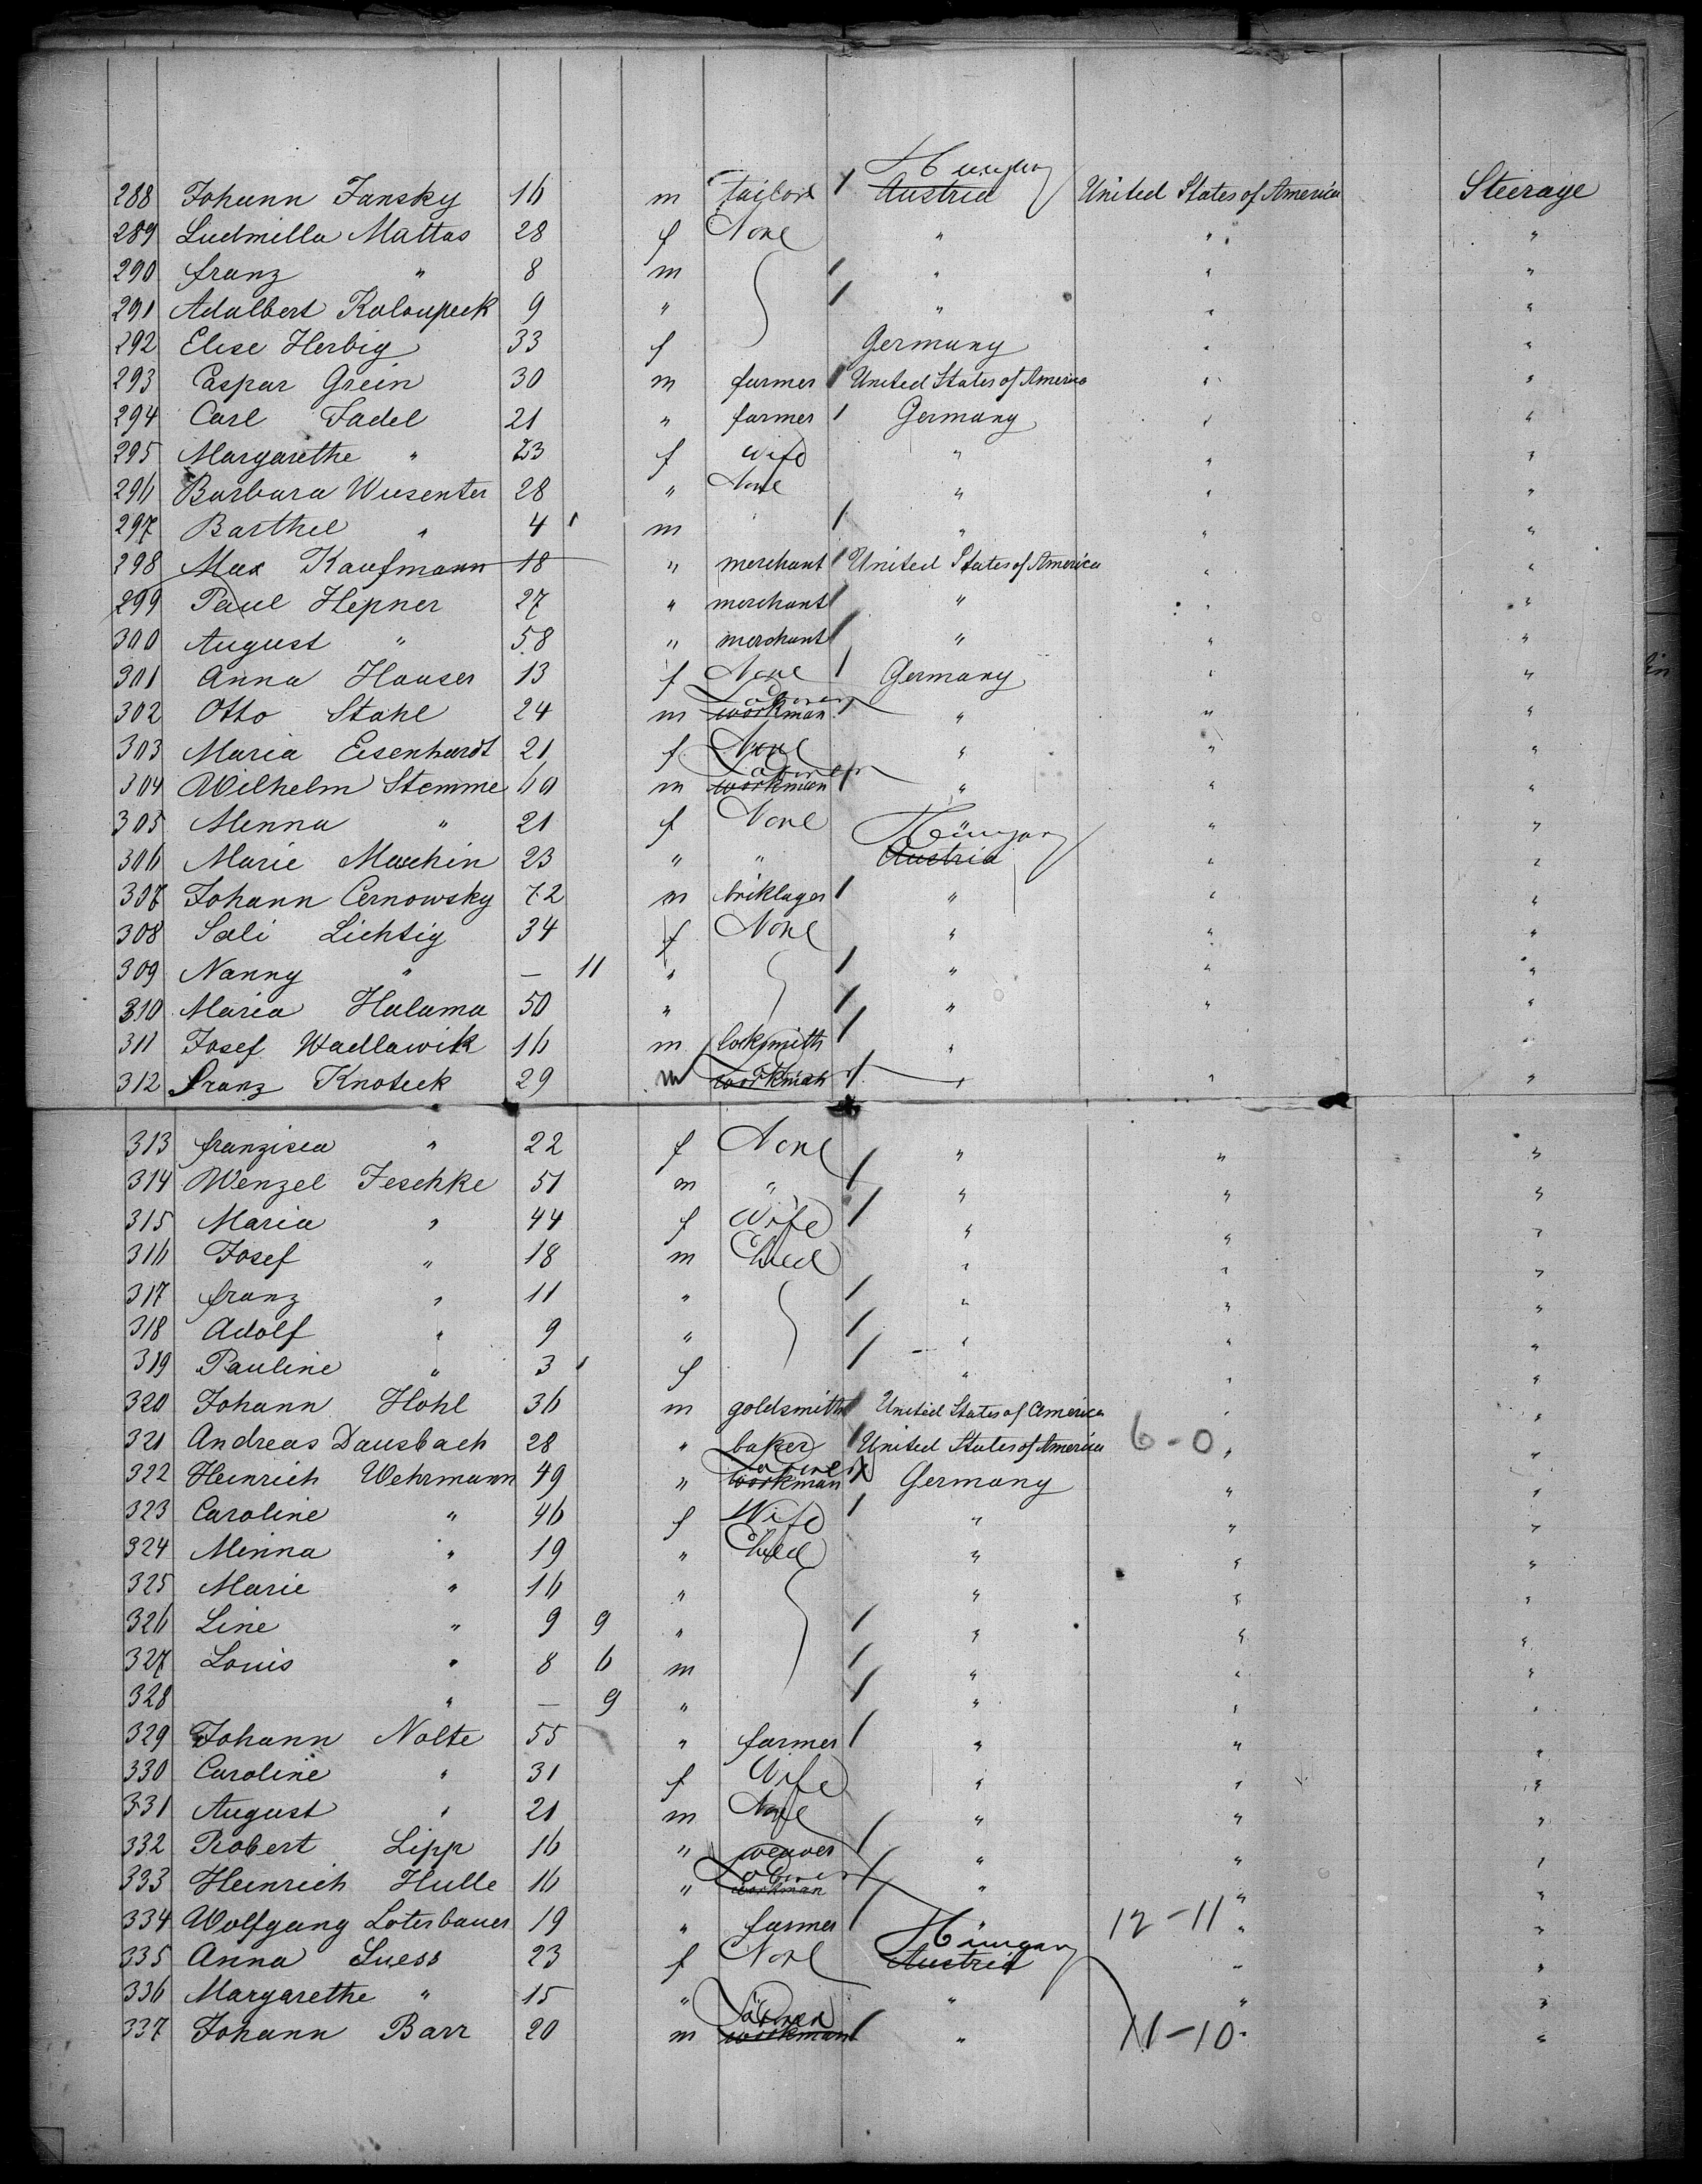 Hungary
288 Johann Jansky 16 m tailor / Austria United States of America Steerage
289 Ludmilla Mattas 28 f None " " "
290 franz " 8 m / " " "
291 Adalbert Kaloupeck 9 " / " " "
292 Elise Herbig 33 f Germany " "
293 Caspar Grein 30 m farmer / United States of America " "
294 Carl Jadel 21 " farmer / Germany " "
295 Margarethe " 23 f Wife " " "
296 Barbara Wiesenter 28 " None " " "
297 Barthel " 4 m / " " "
298 Max Kaufmann 18 " merchant / United States of America " "
299 Paul Hepner 27 " merchant / " " "
300 August " 58 " merchant / " " "
301 Anna Hauser 13 f None / Germany " "
Laborer
302 Otto Stahl 24 m workman / " " "
303 Maria Eisenhardt 21 f None " " "
Laborer
304 Wilhelm Stemme 60 m workman / " " "
305 Minna " 21 f None " "
Hungary
306 Marie Machin 23 " " Austria " "
307 Johann Cernowsky 72 m briklager / " " "
308 Sali Lichtig 34 f None " " "
309 Nanny " — 11 " / " " "
310 Maria Halama 50 " / " " "
311 Josef Wadlawik 16 m loksmith / " " "
312 franz Knoteck 29 m workman / " " "
313 franzisca " 22 f None " " "
314 Wenzel Jeschke 51 m " / " " "
315 Maria " 44 f Wife / " " "
316 Josef " 18 m Child " " "
317 franz " 11 " / " " "
318 Adolf " 9 " / " " "
319 Pauline " 3 f / " " "
320 Johann Hohl 36 m goldsmith / United States of America " "
321 Andreas Dausbach 28 " baker / United States of America 6-0 " "
Laborer
322 Heinrich Wehrmann 49 " workman X Germany " "
323 Caroline " 46 f Wife / " " "
324 Minna " 19 " Child " " "
325 Marie " 16 " " " "
326 Line " 9 9 " / " " "
327 Louis " 8 6 m / " " "
328 " — 9 " / " " "
329 Johann Nolte 55 " farmer / " " "
330 Caroline " 31 f Wife " " "
331 August " 21 m None " " "
332 Robert Lipp 16 " weaver / " " "
Laborer
333 Heinrich Hulle 16 " workman / " " "
334 Wolfgang Loterbauer 19 " farmer / " 12-11 " "
Hungary
335 Anna Suess 23 f None Austria " "
336 Margarethe " 15 " " " " "
Laborer
337 Johann Barr 20 m workman / " 11-10 " "